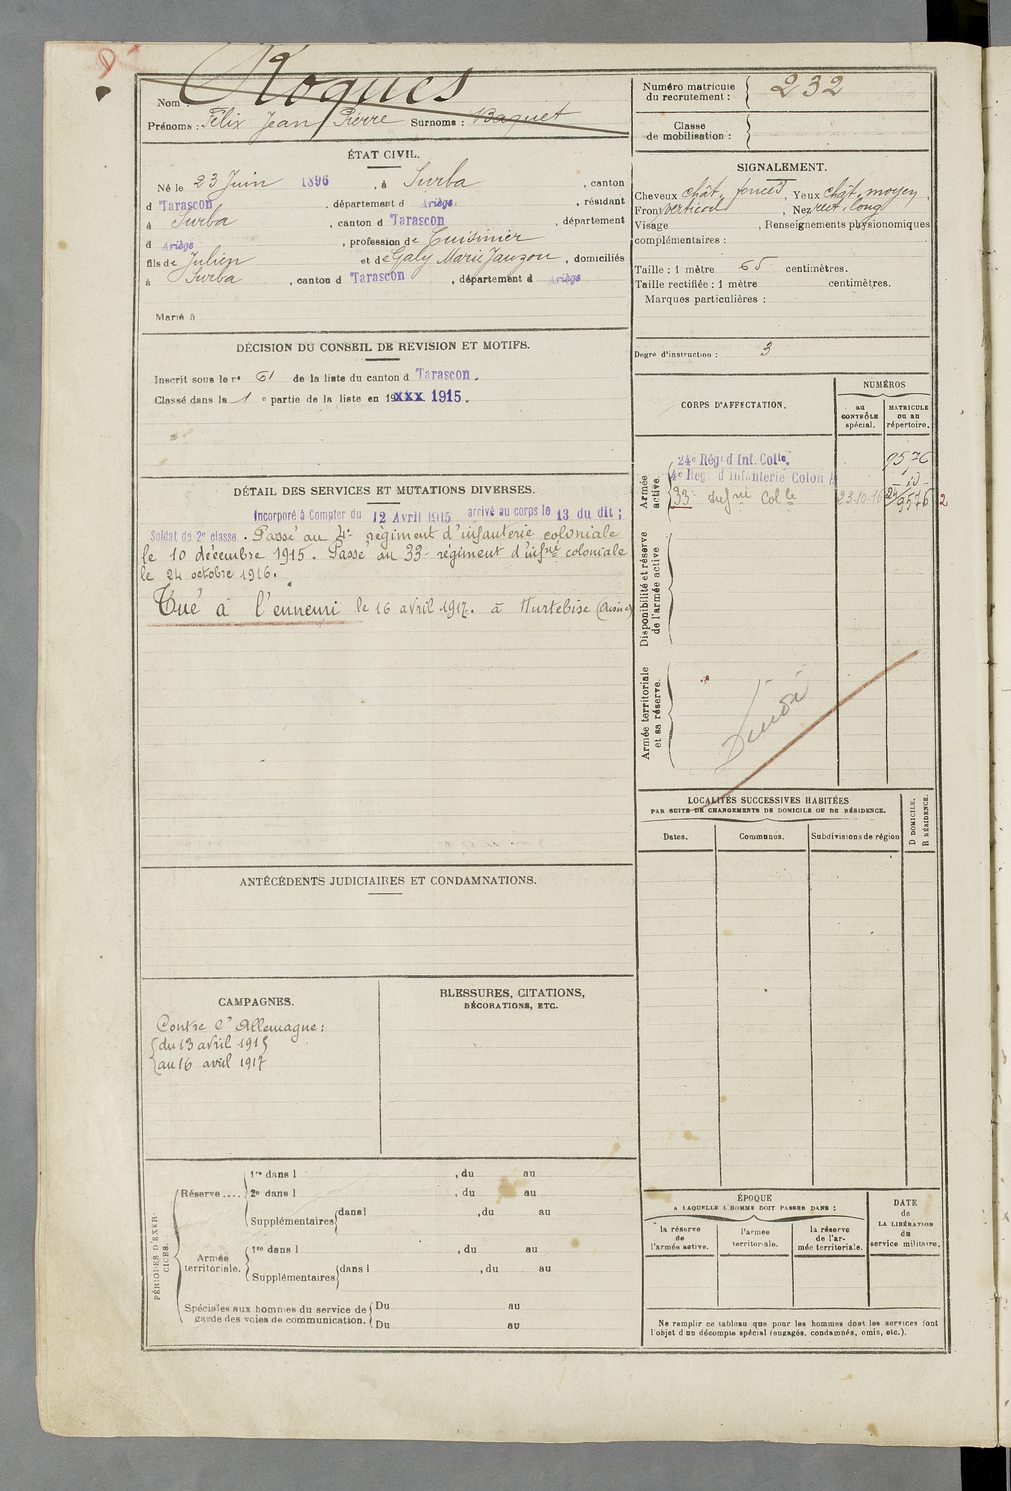 Nom : Roques
Prénoms : Félix Jean Pierre Surnoms : Baquet
Numéro matricule du recrutement : 232
Classe de mobilisation :
ÉTAT CIVIL.
Né le 23 Juin 1896, à Surba, canton
d Tarascon, département d Ariège, résidant
à Surba, canton d Tarascon, département
d Ariège, profession de Cuisinier
fils de Julien et de Galy Marie Jauzou, domiciliés
à Surba, canton d Tarascon, département d Ariège
Marié à
SIGNALEMENT.
Cheveux chât. foncés, Yeux chât. moyen,
Front vertical, Nez rect. long
Visage , Renseignements physionomiques
complémentaires :
Taille : 1 mètre 65 centimètres.
Taille rectifiée : 1 mètre centimètres.
Marques particulières :
Degré d'instruction : 3
DÉCISION DU CONSEIL DE REVISION ET MOTIFS.
Inscrit sous le n° 61 de la liste du canton d Tarascon.
Classé dans la 1e partie de la liste en 19xxx 1915.
CORPS D'AFFECTATION.
NUMÉROS
au CONTRÔLE spécial.
MATRICULE ou au répertoire.
Armée active.
24e Rég. d'Inf. Colle. 9576
4e Reg d'Infanterie Colon
33e Infrie Colle 23.10.16 24/9576 2
Disponibilité et réserve de l'armée active.
Armée territoriale et sa réserve.
DÉTAIL DES SERVICES ET MUTATIONS DIVERSES.
Incorporé à Compter du 12 Avril 1915 arrivé au corps le 13 du dit ;
Soldat de 2e classe. Passé au 4e régiment d'infanterie coloniale
le 10 décembre 1915. Passé au 33e régiment d'infrie coloniale
le 24 octobre 1916.
Tué à l'ennemi le 16 avril 1917. à Hurtebise (Aisne)
LOCALITÉS SUCCESSIVES HABITÉES
PAR SUITE DE CHANGEMENTS DE DOMICILE OU DE RÉSIDENCE.
Dates. Communes. Subdivisions de région
D DOMICILE.
R RÉSIDENCE.
ANTÉCÉDENTS JUDICIAIRES ET CONDAMNATIONS.
CAMPAGNES.
Contre l'Allemagne :
du 13 avril 1915
au 16 avril 1917
BLESSURES, CITATIONS,
DÉCORATIONS, ETC.
PÉRIODES D'EXERCICES.
Réserve.... 1re dans l , du au
2e dans l , du au
Supplémentaires dans l , du au
Armée territoriale. 1re dans l , du au
Supplémentaires dans l , du au
Spéciales aux hommes du service de Du au
garde des voies de communication. Du au
ÉPOQUE
A LAQUELLE L'HOMME DOIT PASSER DANS :
la réserve de l'armée active.
l'armée territoriale.
la réserve de l'armée territoriale.
DATE de LA LIBÉRATION du service militaire.
Ne remplir ce tableau que pour les hommes dont les services font
l'objet d'un décompte spécial (engagés, condamnés, omis, etc.).